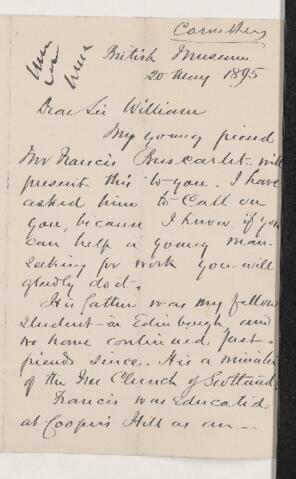 Carruthers
British Museum
20 May 1895
Dear Sir William
My young friend
Mr Francis Buscarlet will
present this to you. I have
asked him to call on
you, because I know if you
can help a young man
seeking for work you will
gladly do it.
His father was my fellow
student in Edinburgh and
we have continued fast
friends since. He is a minister
of the Free Church of Scotland.
Francis was educated
at Coopers Hill as an